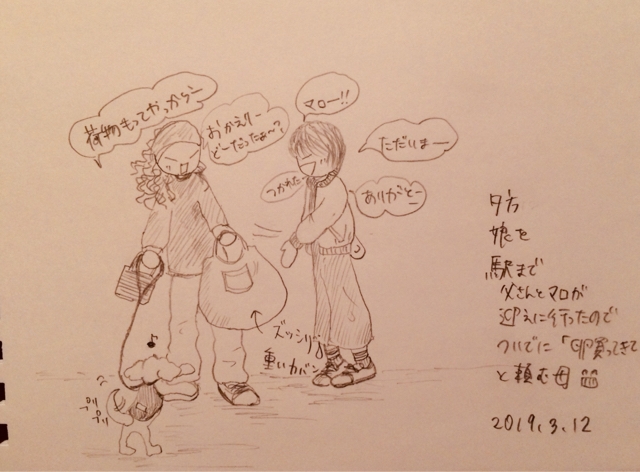 荷物もってやっからー
おかえりー
どーだったぁ〜?
マロー!!
ただいまー
つかれたー
ありがとー
ズッシリ
重いカバン
プリ
プリ
夕方
娘を
駅まで
父さんとマロが
迎えに行ったので
ついでに「卵買ってきて
と頼む母
2019.3.12